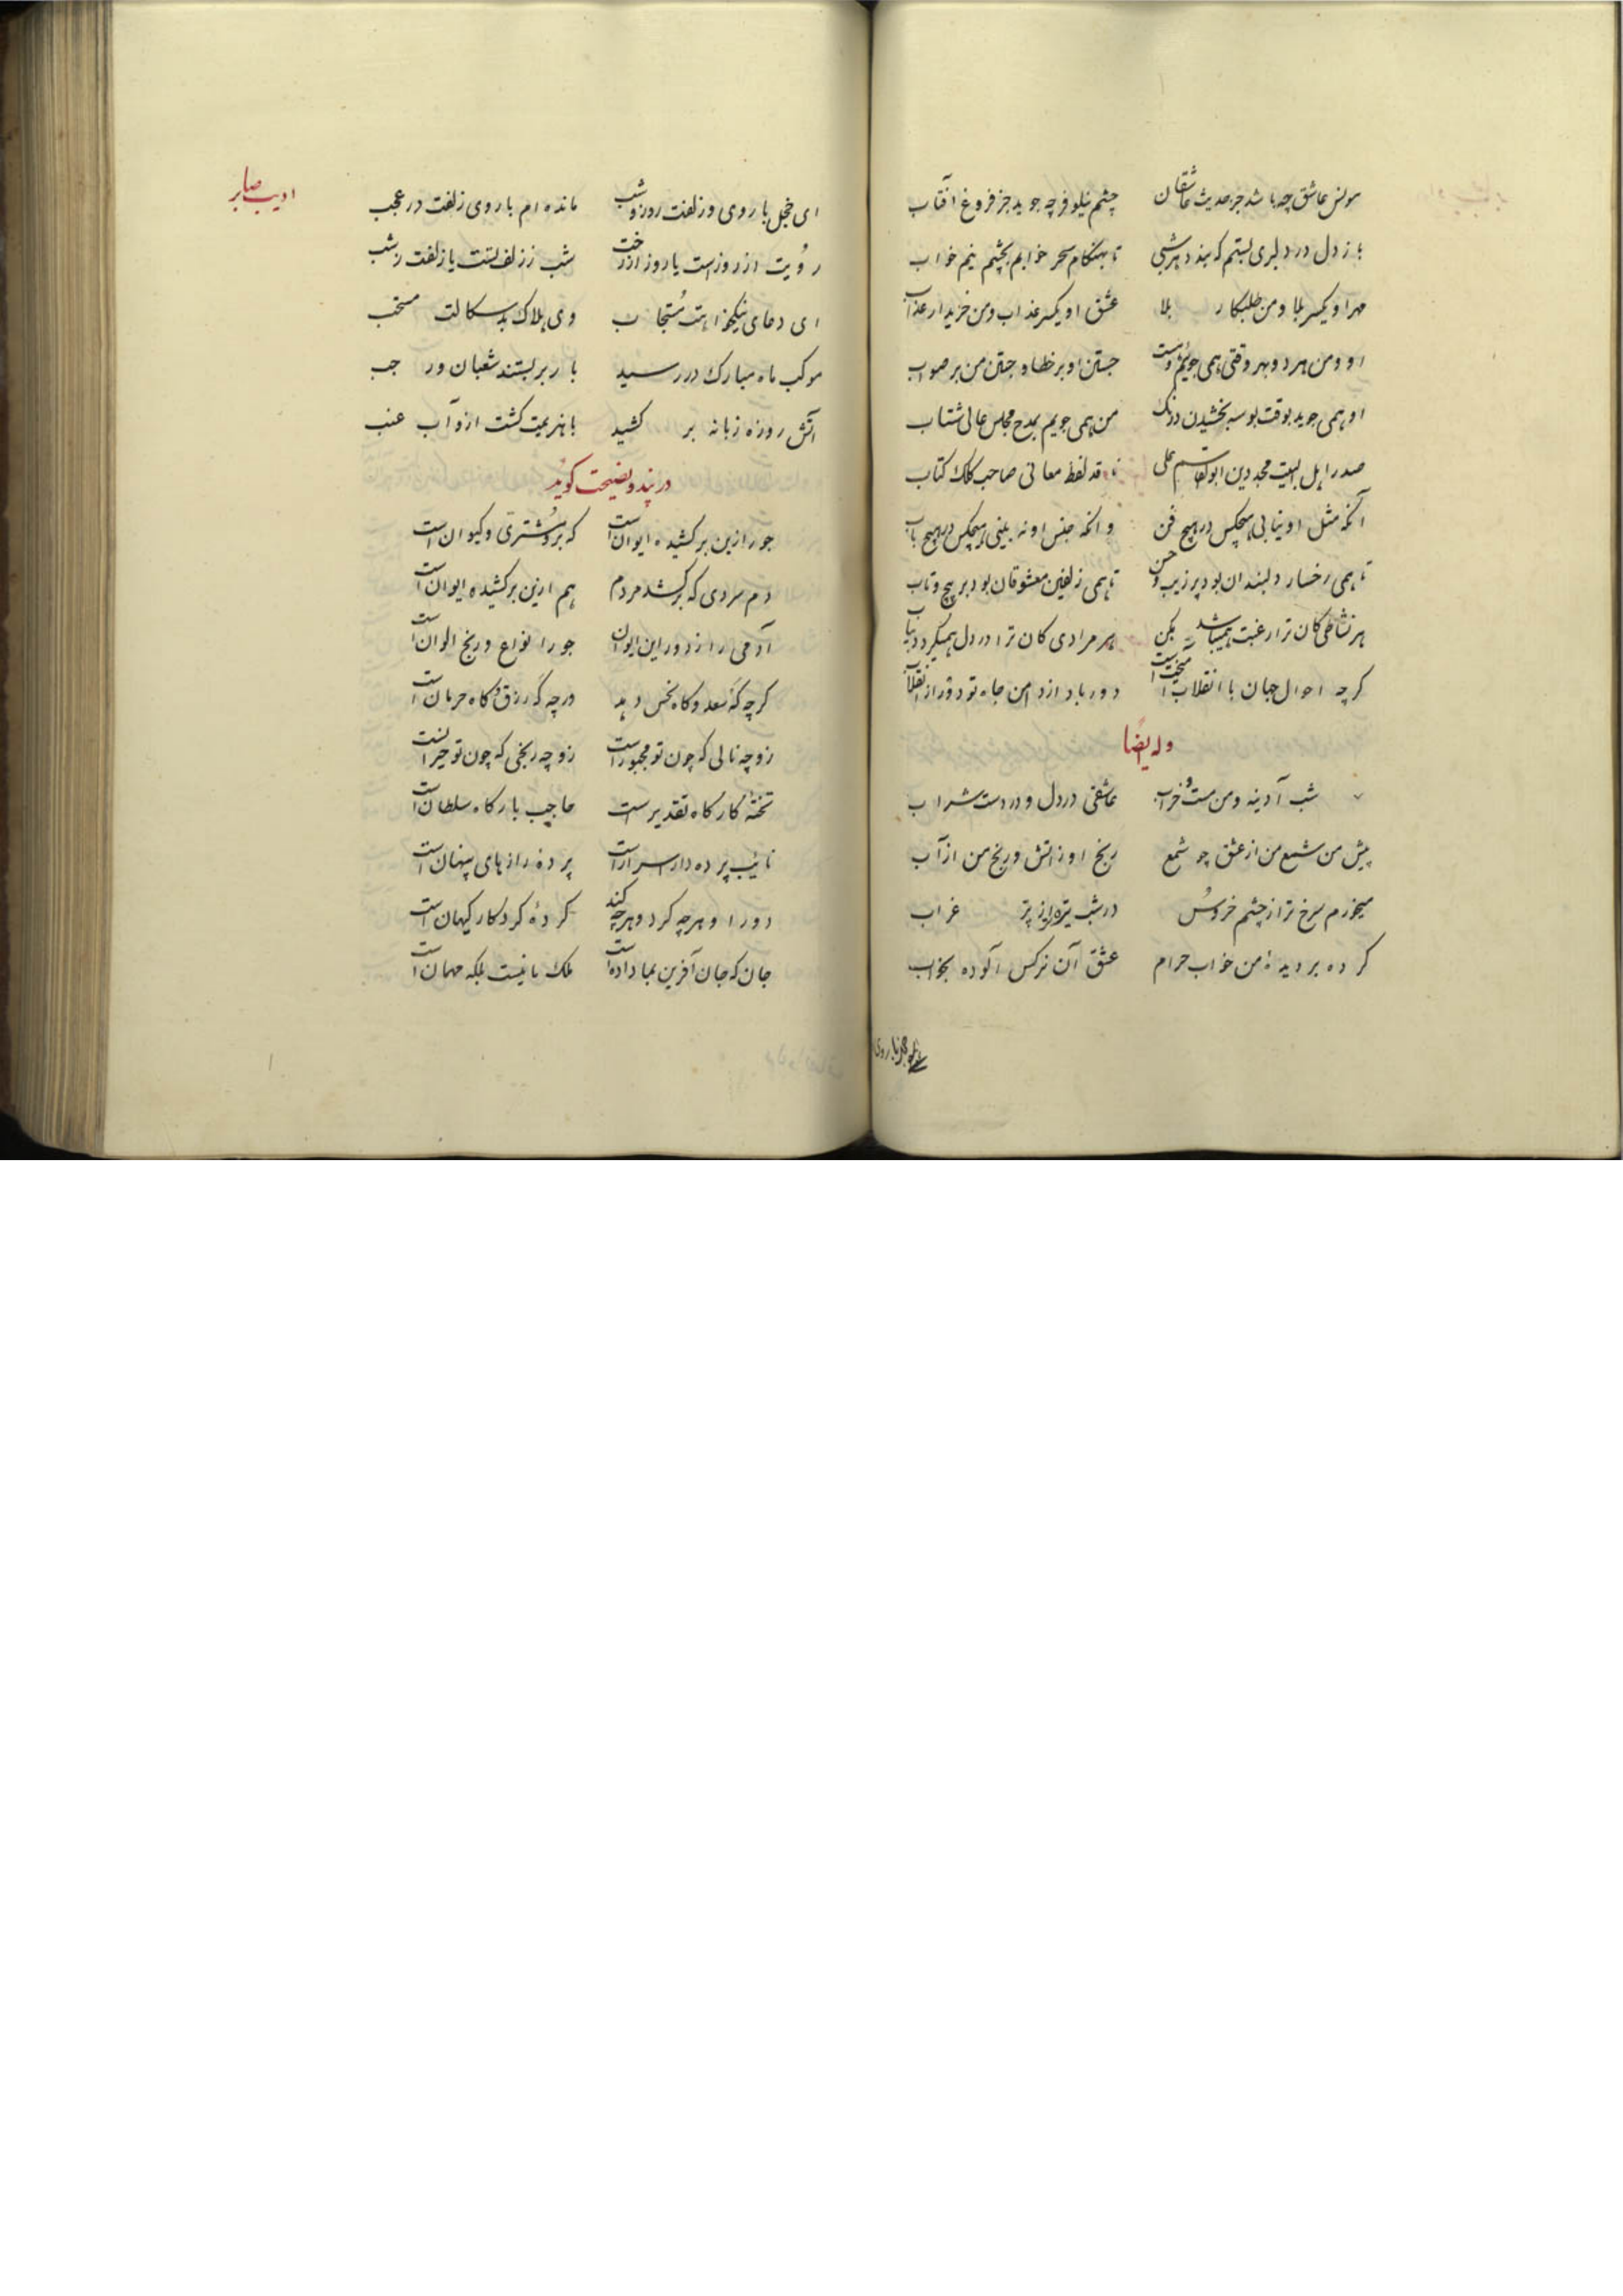 مونس عاشق چه باشد جز حدیث عاشقان چشم نیلوفر چه جوید جز فروغ آفتاب
باز دل در دلبری بستم که بندد هر شبی تا بهنکام سحر خوابم بچشم نیم خواب
مهر او یکسر بلا و من طلبکار بلا عشق او یکسر عذاب و من خریدار عذاب
او و من هر دو بهر وقتی همی جوئیم وصلت جستن او بر خطا و جستن من بر صواب
او همی جوید بوقت بوسه بخشیدن درنک من همی جویم بمدح مجلس عالی شتاب
صدر اهل البیت مجد دین ابوالقاسم علی ناقد لفظ معانی صاحب کلک کتاب
آنکه مثل او نیابی هیچکس در هیچ فن وانکه جنس او نه بینی هیچکس در هیچ باب
تا همی رخسار دلبندان بود پر زیب و حسن تا همی زلفین معشوقان بود پر پیچ و تاب
هر نشاطی کان ترا رغبت همیباشد بکن هر مرادی کان ترا در دل همیکردد بیاب
کرچه احوال جهان با انقلاب آمیختست دور باد از دامن جاه تو دور از انقلاب
وله ایضا
شب آدینه و من مست و خراب عاشقی در دل و در دست شراب
پیش من شمع من از عشق چو شمع رنج او ز اتش و رنج من از آب
میخورم سرخ تر از چشم خروس در شب تیره تر از پر غراب
کرده بر دیدهٔ من خواب حرام عشق آن نرکس آلوده بخواب
ادیب صابر
ای خجل با روی و زلفت روز و شب مانده ام با روی زلفت در عجب
رویت از روزست یا روز از رخت شب ز زلف تست یا زلفت ز شب
ای دعای نیکخواهت مستجاب وی هلاک بدسکالت منتخب
موکب ماه مبارک در رسید بار بر بستند شعبان و رجب
آتش روزه زبانه بر کشید با هزیمت کشت ازو آب عنب
در پند و نصیحت کوید
جور ازین بر کشیده ایوانست که بر و مشتری و کیوانست
دم سردی که بر کشد مردم هم ازین بر کشیده ایوانست
آدمی را ز دور این ایوان جور انواع و رنج الوانست
کرچه که سعد و کاه نحس دهد ورچه که رزق و کاه حرمانست
زو چه نالی که چون تو مجبورست زو چه رنجی که چون تو حیرانست
تختهٔ کارکاه تقدیرست حاجب بارکاه سلطانست
نایب پرده دار اسرارست پردهٔ رازهای پنهانست
دور او هرچه کرد و هرچه کند کردهٔ کردکار کیهانست
جان که جان آفرین بما دادست ملک ما نیست بلکه مهمانست